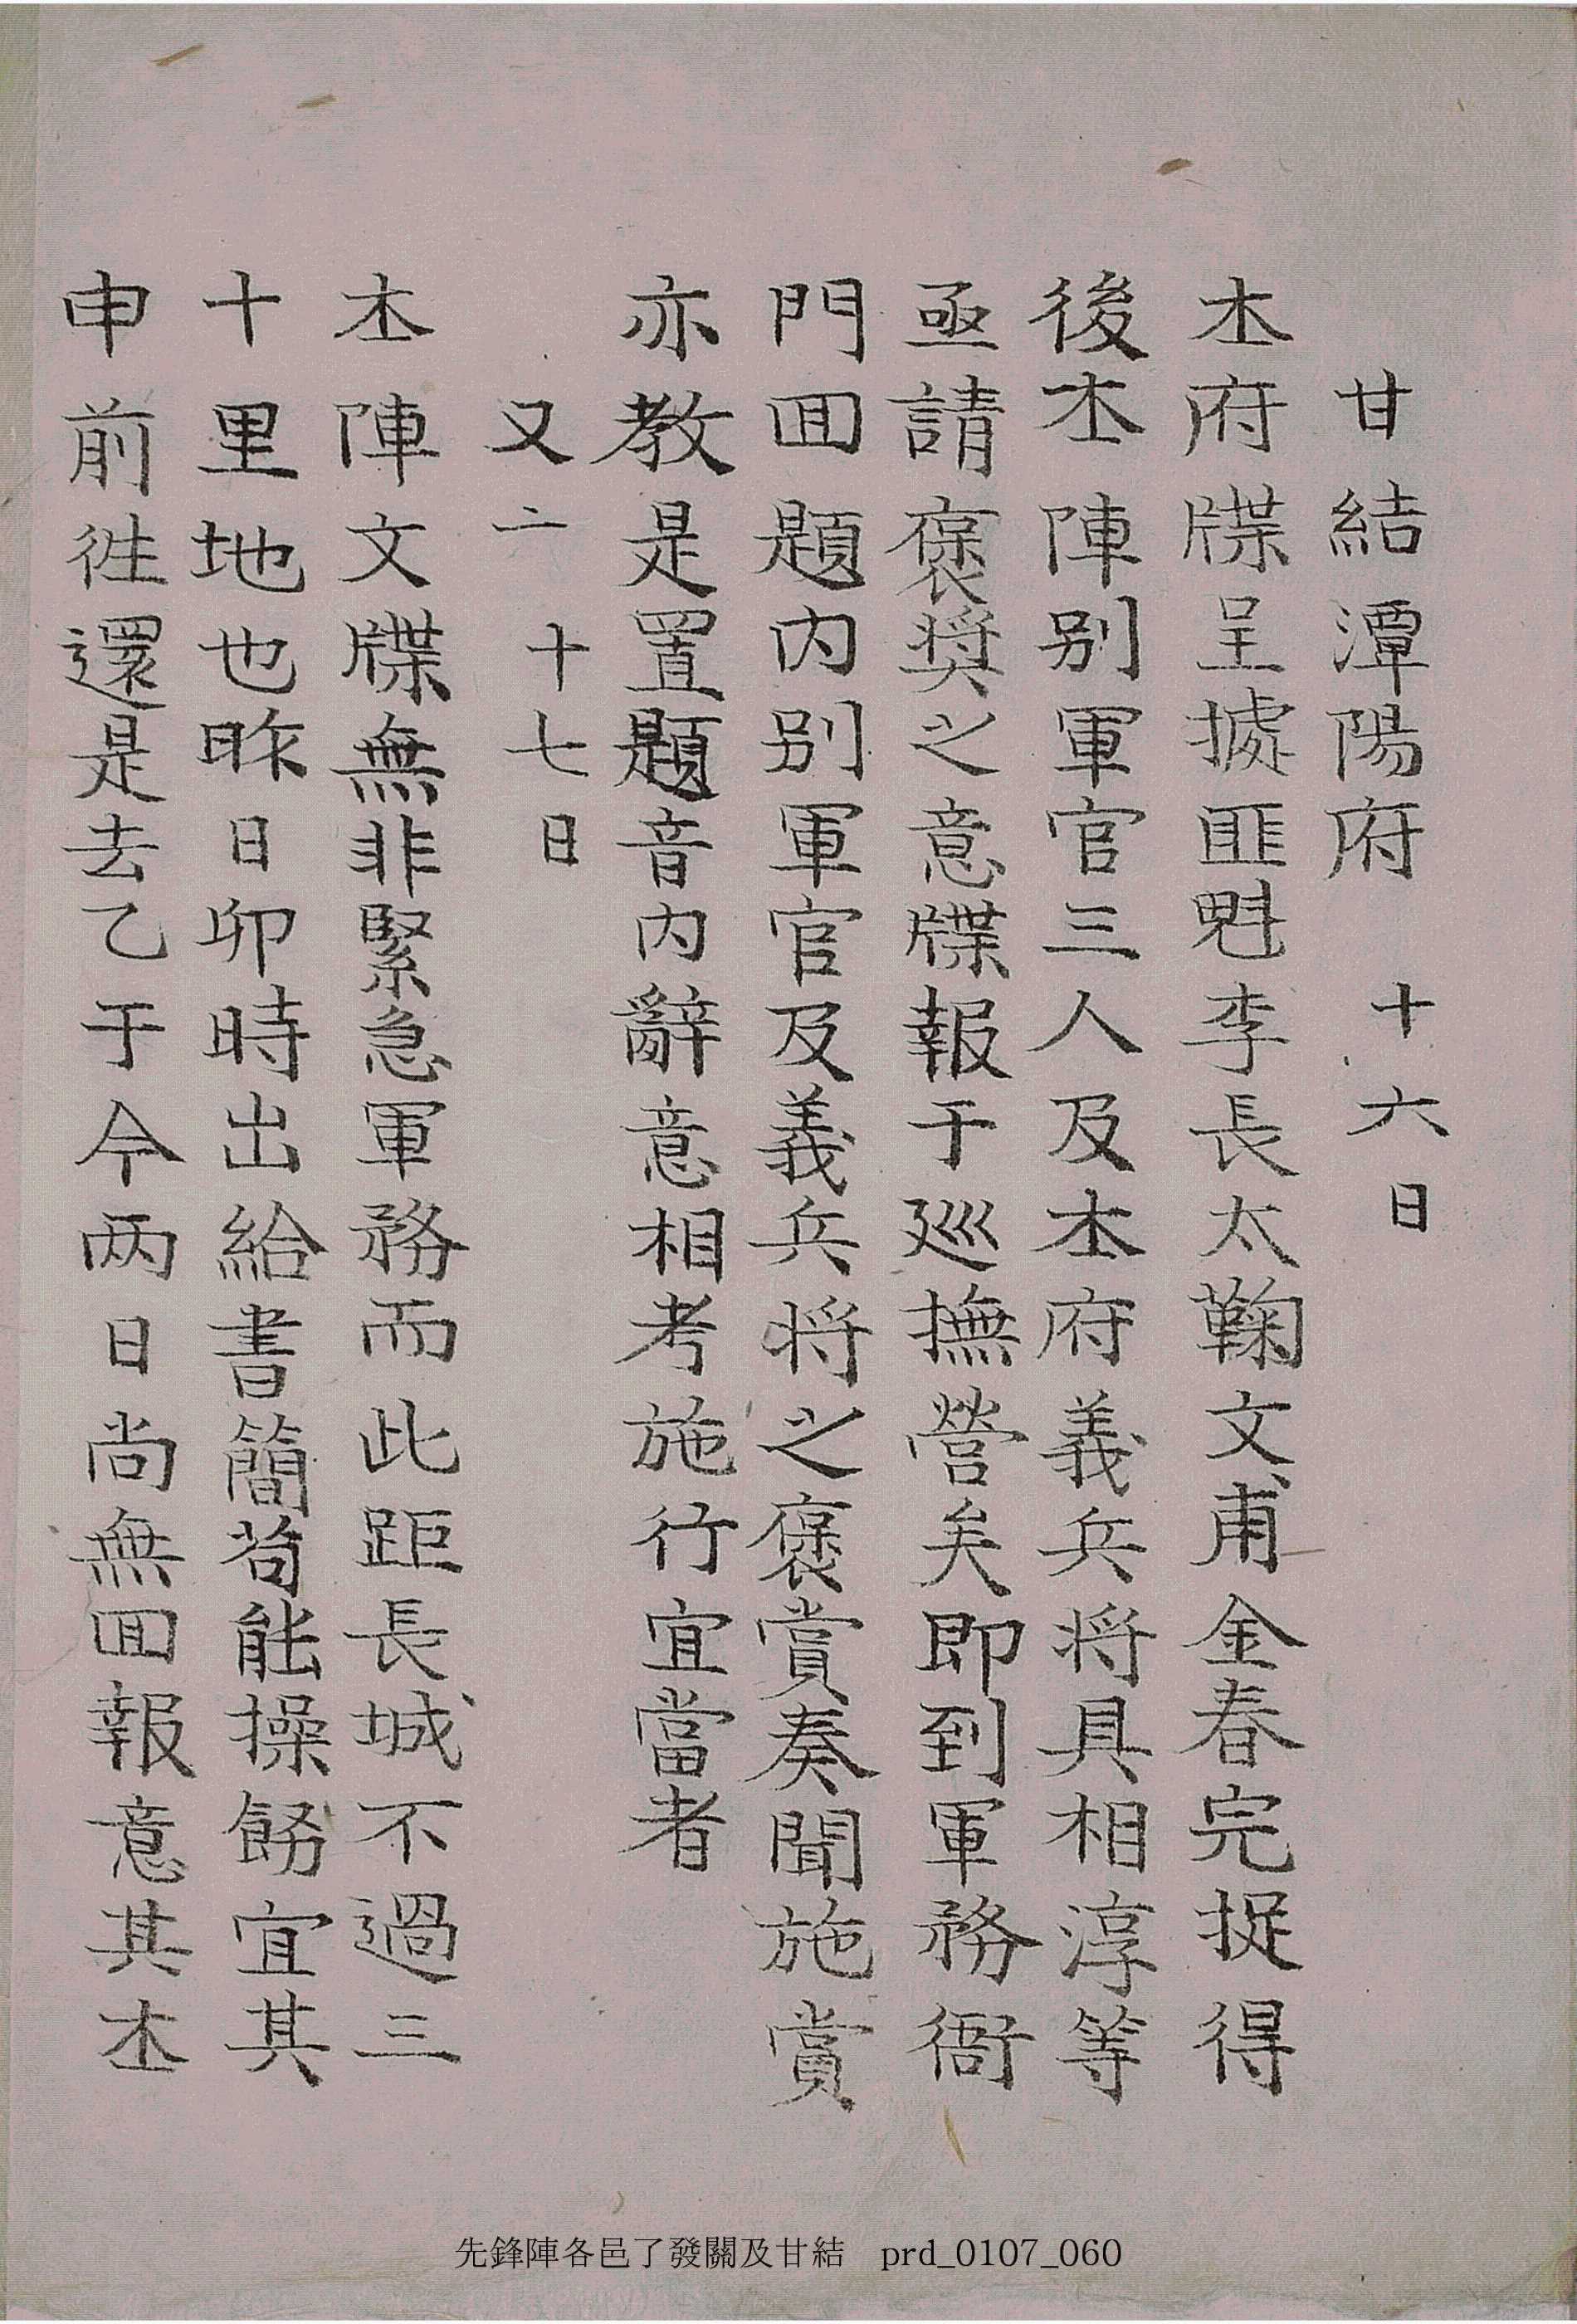 甘結潭陽府 十六日
本府牒呈據匪魁李長太鞠文甫金春完捉得
後本陣別軍官三人及本府義兵將具相淳等
亟請褒奬之意牒報于巡撫營矣即到軍務衙
門回題內別軍官及義兵將之褒賞奏聞施賞
亦教是置題音內辭意相考施行宜當者
又二 十七日
本陣文牒無非緊急軍務而此距長城不過三
十里地也昨日卯時出給書簡苟能操飭宜其
申前徃還是去乙于今两日尚無回報意其本
先鋒陣各邑了發關及甘結 prd_0107_060